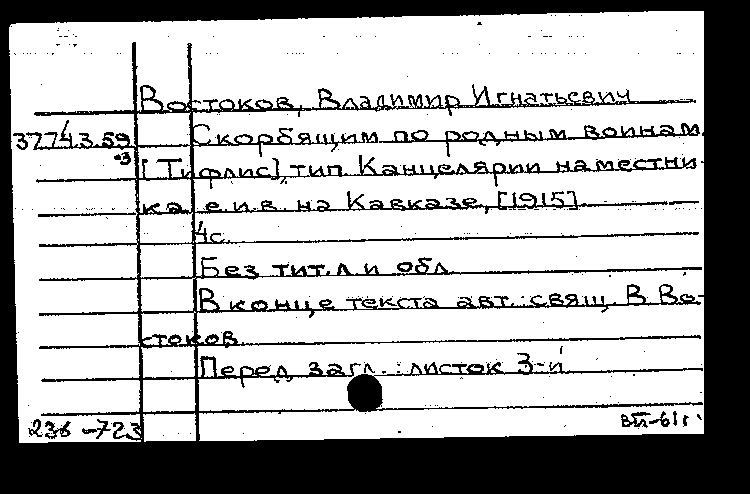 Востоков, Владимир Игнатьевич
37743.59 Скорбящим по родным воинам.
-3 [Тифлис], тип. Канцелярии наместни-
ка е.и.в. на Кавказе, [1915].
4с.
Без тит. л. и обл.
В конце текста авт.: свящ. В. Во-
стоков.
Перед загл.: листок 3-й
236-723 вп-61г.